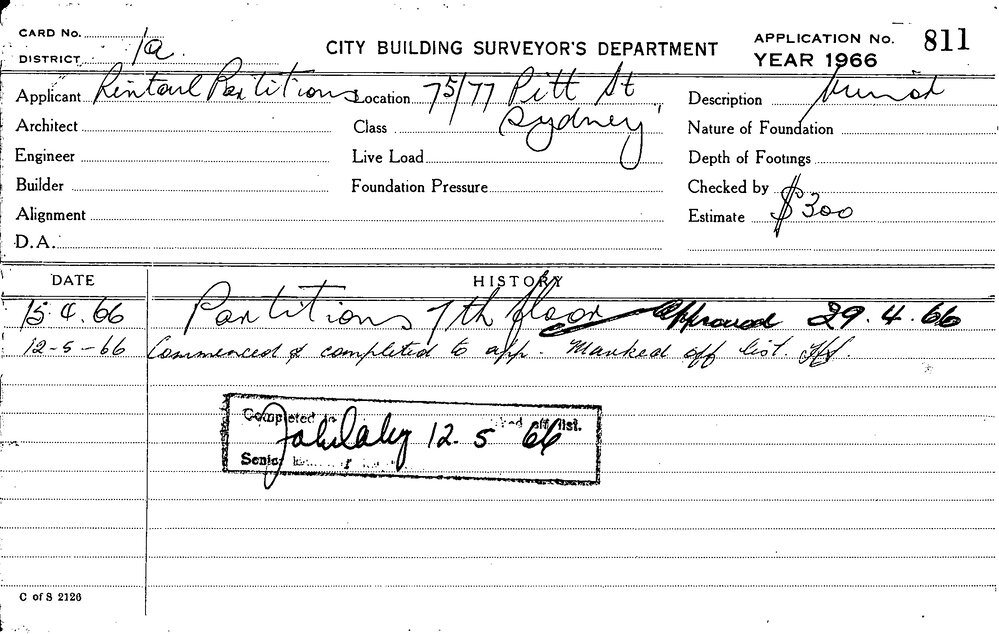 CARD No.
DISTRICT 1a.
CITY BUILDING SURVEYOR'S DEPARTMENT
APPLICATION No. 811
YEAR 1966
Applicant Rintoul Partitions
Location 75/77 Pitt St,
Sydney
Description
Architect
Class
Nature of Foundation
Engineer
Live Load
Depth of Footings
Builder
Foundation Pressure
Checked by
Alignment
Estimate $300
D.A.
DATE HISTORY
15.4.66 Partitions 7th floor Approved 29.4.66
12-5-66 Commenced & completed to app. Marked off list.
Completed off list.
12.5 66
Senior
C of S 2126